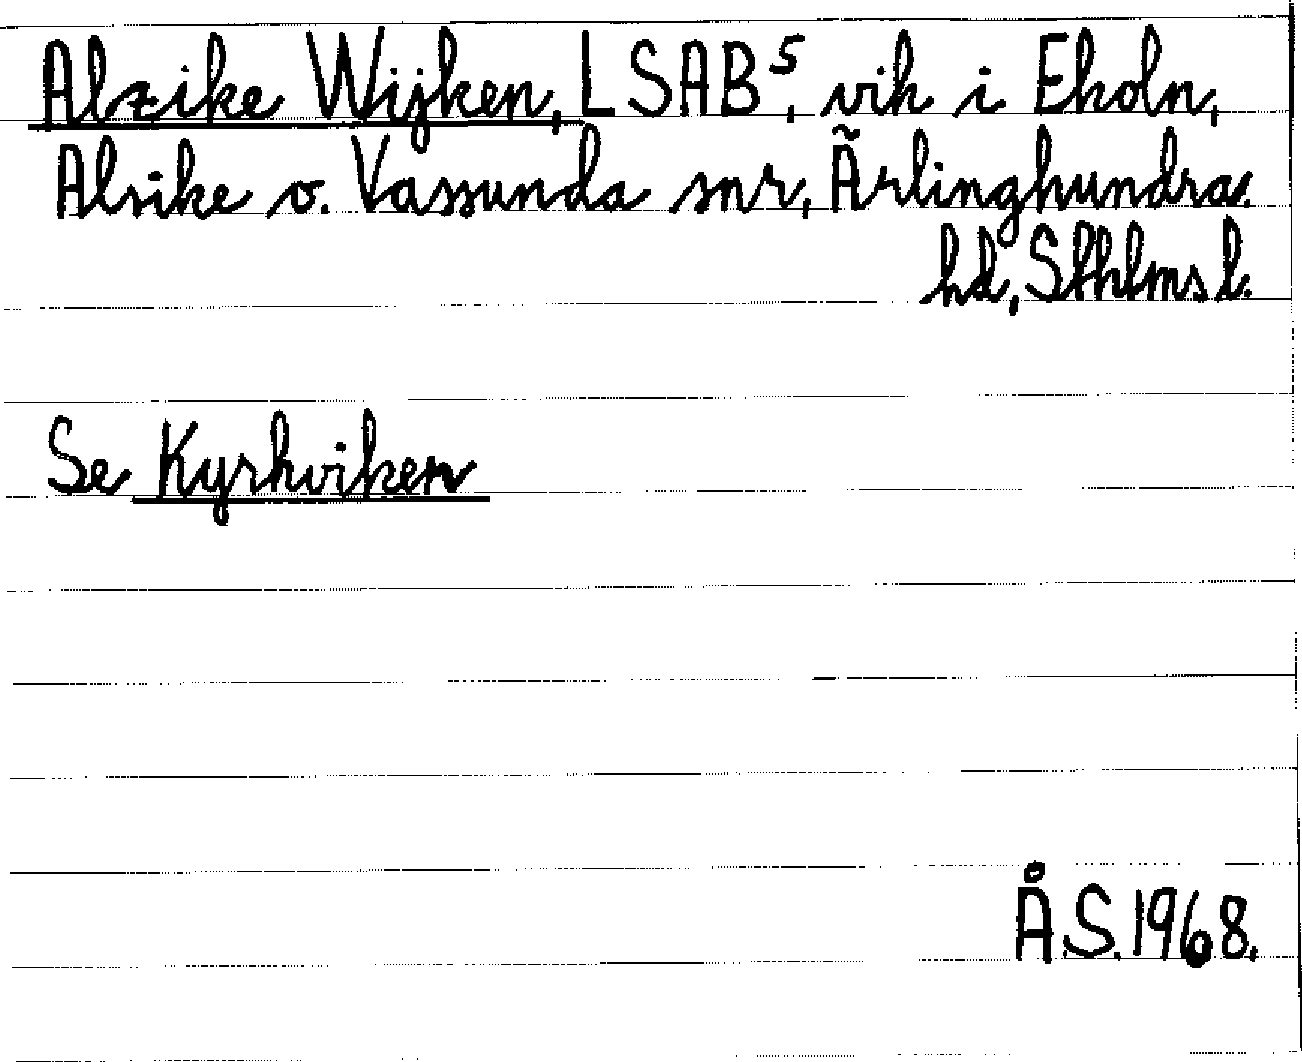 Alzike Wijken, LSAB⁵, vik i Ekoln,
Alsike o. Vassunda snr, Ärlinghundra
hd, Sthlms l.
Se Kyrkviken
Å.S. 1968.